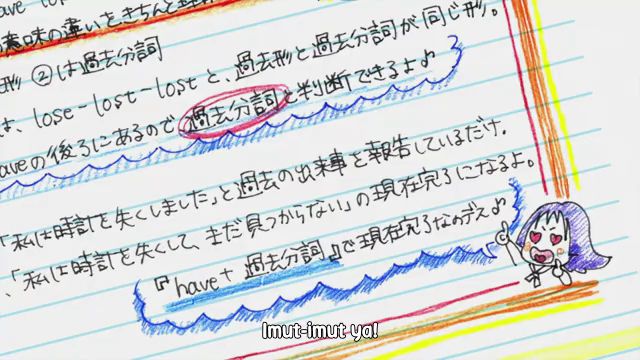 意味の違いをきちんと理解
形 ②は過去分詞
は、lose-lost-lostと、過去形と過去分詞が同じ形。
aveの後ろにあるので過去分詞と判断できるよ♪
「私は時計を失くしました」と過去の出来事を報告しているだけ。
、「私は時計を失くして、まだ見つからない」の現在完了になるよ。
『have+ 過去分詞』で現在完了なのデス♪
Imut-imut ya!